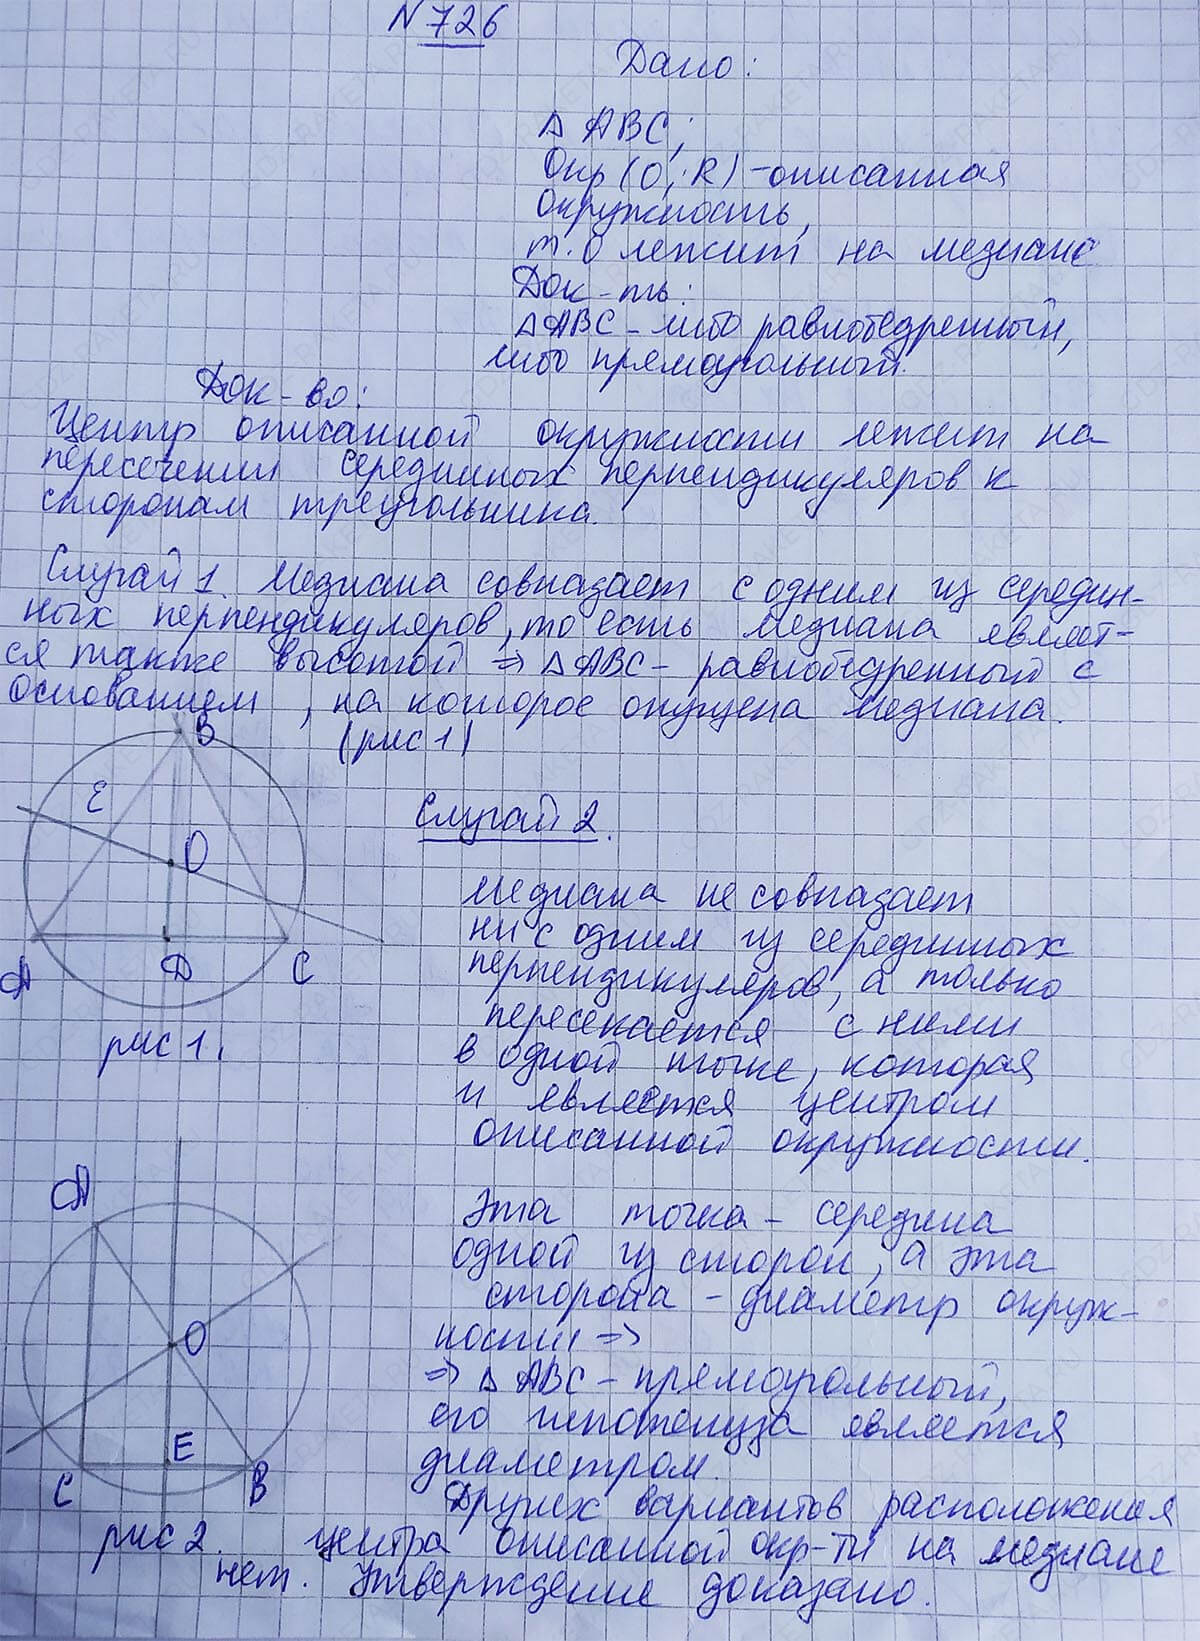 N 726
Дано:
Δ ABC;
Окр (O; R) - описанная
окружность,
т. О лежит на медиане
Док-ть:
ΔABC - либо равнобедренный,
либо прямоугольный.
Док-во:
Центр описанной окружности лежит на
пересечении серединных перпендикуляров к
сторонам треугольника.
Случай 1. Медиана совпадает с одним из середин-
ных перпендикуляров, то есть медиана являет-
ся также высотой ⇒ ΔABC - равнобедренный с
основанием, на которое опущена медиана.
(рис 1)
B
E
O
A
D
C
рис 1.
Случай 2.
Медиана не совпадает
ни с одним из серединных
перпендикуляров, а только
пересекается с ними
в одной точке, которая
и является центром
описанной окружности.
A
O
E
C
B
рис 2.
Эта точка - середина
одной из сторон, а эта
сторона - диаметр окруж-
ности ⇒
⇒ Δ ABC - прямоугольный,
его гипотенуза является
диаметром.
Других вариантов расположения
центра описанной окр-ти на медиане
нет. Утверждение доказано.